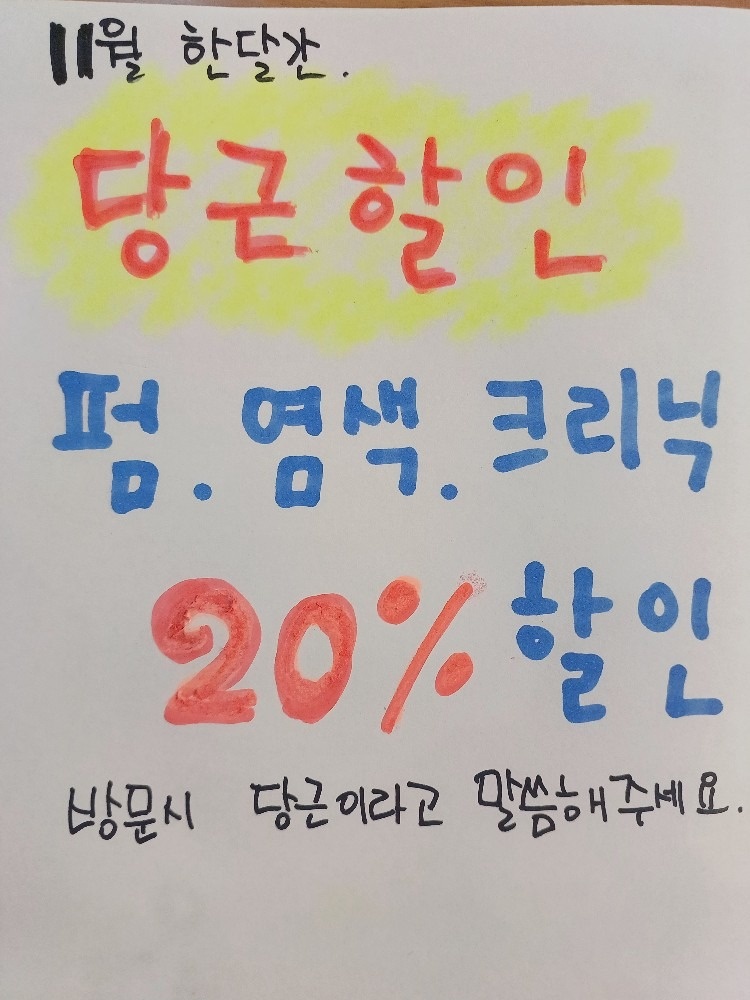 11월 한달간.
당근할인
펌. 염색. 크리닉
20% 할인
방문시 당근이라고 말씀해주세요.